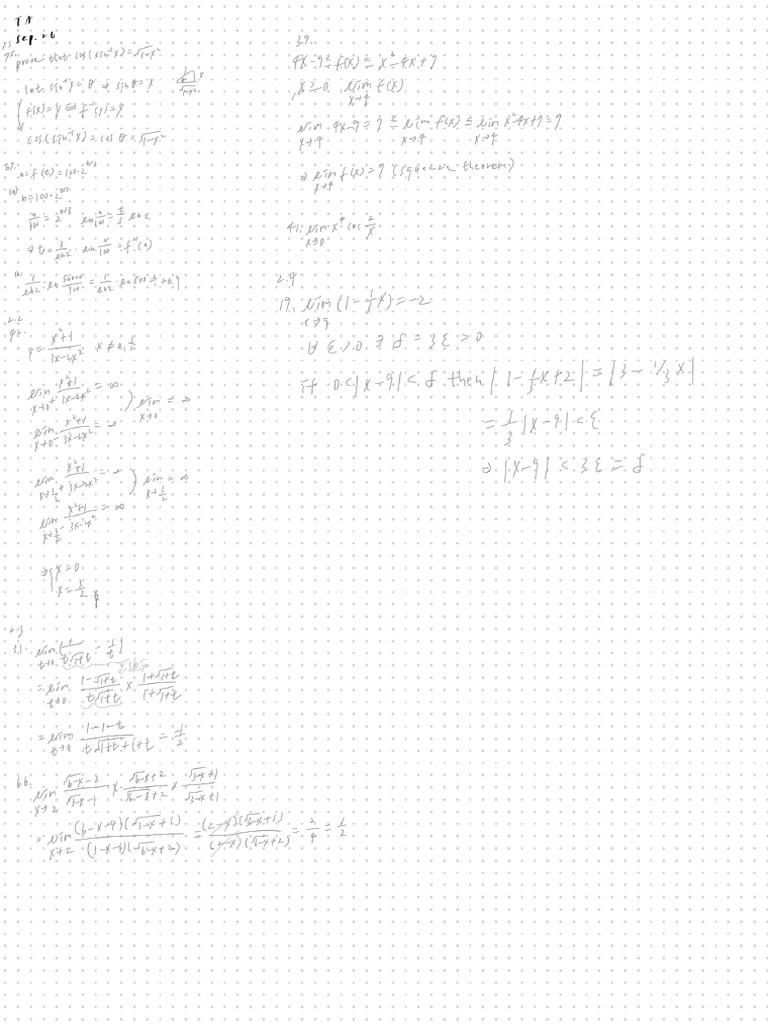 TA
Sep. 26
1.5
75.
prove that cos(sin⁻¹x) = √1-x²
let sin⁻¹x = θ ⇒ sinθ = x
f(x) = y ⇔ f⁻¹(y) = x
cos(sin⁻¹x) = cosθ = √1-x²
n = f(t) = 100·2^(t/3)
(a)
n = 100·2^(t/3)
n/100 = 2^(t/3) ln n/100 = t/3 ln2
⇒ t = 3/ln2 · ln n/100 = f⁻¹(n)
(b) 3/ln2 · ln 50000/100 = 3/ln2 · ln500 ≒ 26.9
2.2
42.
y = x²+1 / 3x-2x² x ≠ 0, 3/2
lim x→0⁺ x²+1 / 3x-2x² = ∞
lim x→0⁻ x²+1 / 3x-2x² = -∞
lim x→3/2⁺ x²+1 / 3x-2x² = -∞
lim x→3/2⁻ x²+1 / 3x-2x² = ∞
⇒ x = 0
x = 3/2
2.3
31. lim t→0 (1 / t√1+t - 1/t)
= lim t→0 1-√1+t / t√1+t × 1+√1+t / 1+√1+t
= lim t→0 1-1-t / t√1+t+1+t = -1/2
66. lim x→2 √6-x -2 / √3-x -1 × √6-x +2 / √6-x +2 × √3-x +1 / √3-x +1
= lim x→2 (6-x-4)(√3-x +1) / (3-x-1)(√6-x +2) = (2-x)(√3-x +1) / (2-x)(√6-x +2) = 2/4 = 1/2
39.
4x-9 ≤ f(x) ≤ x²-4x+7
x ≥ 0 lim x→4 f(x)
lim x→4 4x-9 = 7 ≤ lim x→4 f(x) ≤ lim x→4 x²-4x+7 = 7
⇒ lim x→4 f(x) = 7 (squeeze theorem)
41. lim x→0 x⁴ cos 2/x
2.4
19. lim x→9 (1 - 1/3 x) = -2
∀ ε > 0 ∃ δ = 3ε > 0
if 0 < |x-9| < δ then |1 - 1/3 x + 2| = |3 - 1/3 x|
= 1/3 |x-9| < ε
⇒ |x-9| < 3ε = δ